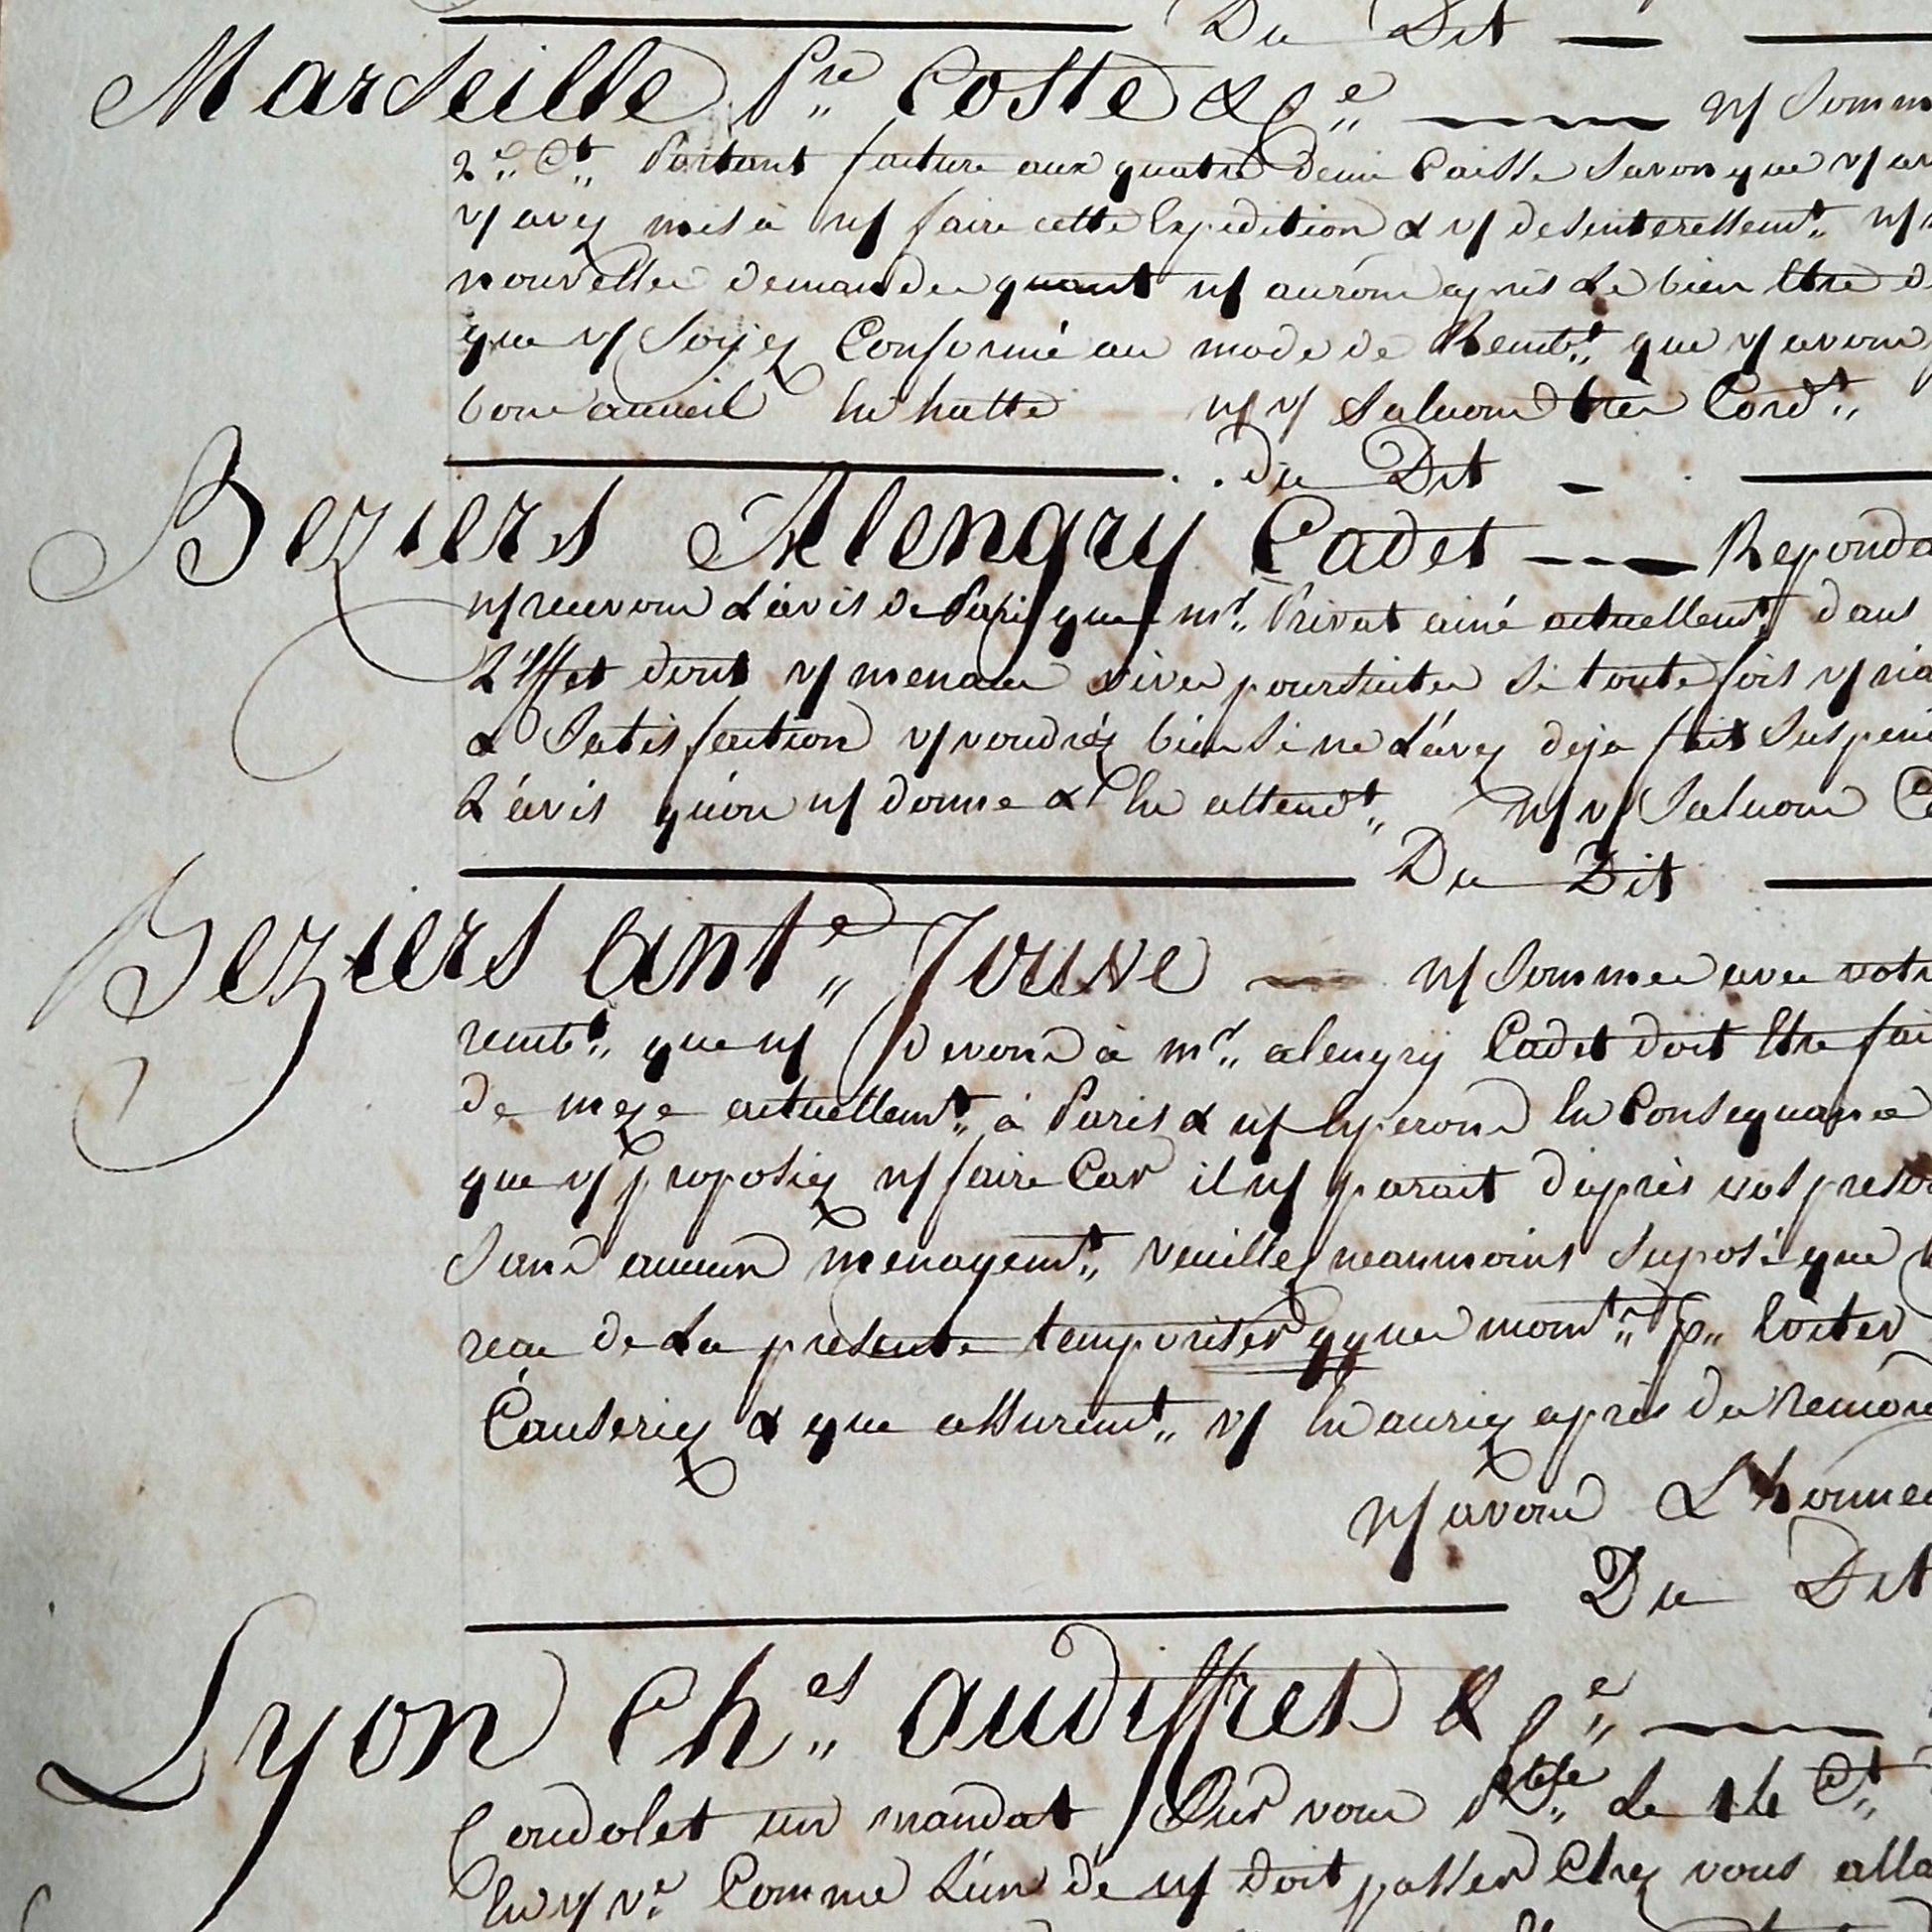 Du Dit
Marseille Pre Coste & Ce n/ somm
2e Ct portant facture aux quatre demi Caisse Savon que v/ av
v/ avez mis à n/ faire cette Expedition & v/ desinteressemt n/
nouvelles demandes quant n/ aurons apris le bien Etre d
que v/ Soyez Conformé au mode de Rembt que v/ avons
bon acueil En hatte n/ v/ Saluons très Cordt
du Dit
Beziers Alengry Cadet Reponda
n/ recevons L'avis de Paris que mr Privat ainé actuellemt dans
L'Effet dont v/ menace vives poursuites Si toute fois v/ n'a
& Satisfaction v/ voudréz bien Si ne L'avez deja fait Suspen
L'avis qu'on n/ donne & En attendt n/ v/ Saluons C
Du Dit
Beziers Ante Jouve n/ Sommes avec votr
rembt que n/ devons à mr alengry Cadet doit Etre fai
de meze actuellemt à Paris & n/ Esperons En Consequance
que v/ proposiez n/ faire Car il n/ parait d'après vos pres
Sans aucun menagemt veuillez neanmoins Suposé que
recu de La presente temporiser qque momts pr Eviter
Causeriez & que assuremt v/ En auriez après du Remor
n/ avons L'honne
Du Dit
Lyon Ches audiffret & Ce
Coudolet un mandat Sur vous de le 16 Ct
En v/ ve Comme L'un de n/ doit passer Chez vous alla